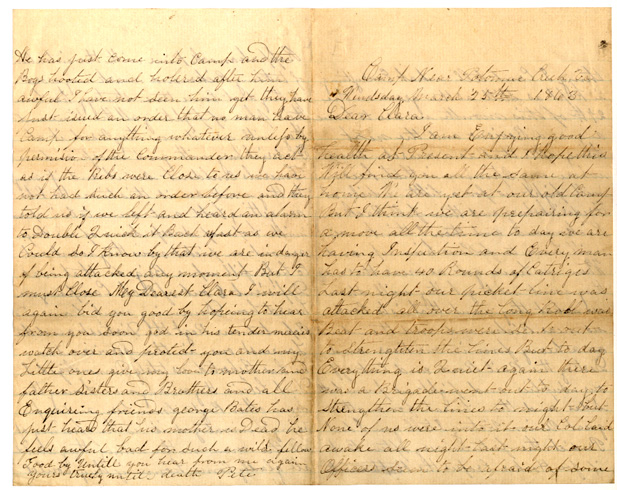 Camp Near Potomac Creek Va
Wendsday March 25th 1863
Dear Clara
I am Enjoying good
health at Present and I hope this
will find you all the same at
home We are yet at our old Camp
But I think we are prepairing for
a move all the time to day we are
having Inspection and Every man
has to have 40 Rounds of Catriges
Last night our picket line was
attacked all over the Long Roal was
Beat and troops were sent out
to Strenghten the lines But to day
Everything is Quiet again there
was a Brigade went out to day to
Strengthen the lines to night But
None of us were into it our Col laid
awake all night last night our
Officers seem to be afraid of some
He has just Come into Camp and the
Boys hooted and holored after him
awful I have not seen him yet they have
just isued an order that no man leave
Camp for anything whatever unless by
permision of the Commander they act
as if the Rebs were Close to us we have
not had such an order before and they
told us if we left and heard an alarm
to Double Quick it Back as fast as we
Could so I know by that we are in danger
of being attacked any moment But I
must Close My Dearest Clara I will
again bid you good by hopeing to hear
from you soon god in his tender mercies
watch over and protect you and my
little ones give my love to mother mine
father Sisters and Brothers and all
Enquiring friends george Bates has
just heard that his mother is Dead he
feels awful bad for such a wild fellow
Good by Untill you hear from me again
yours truly until death Pete